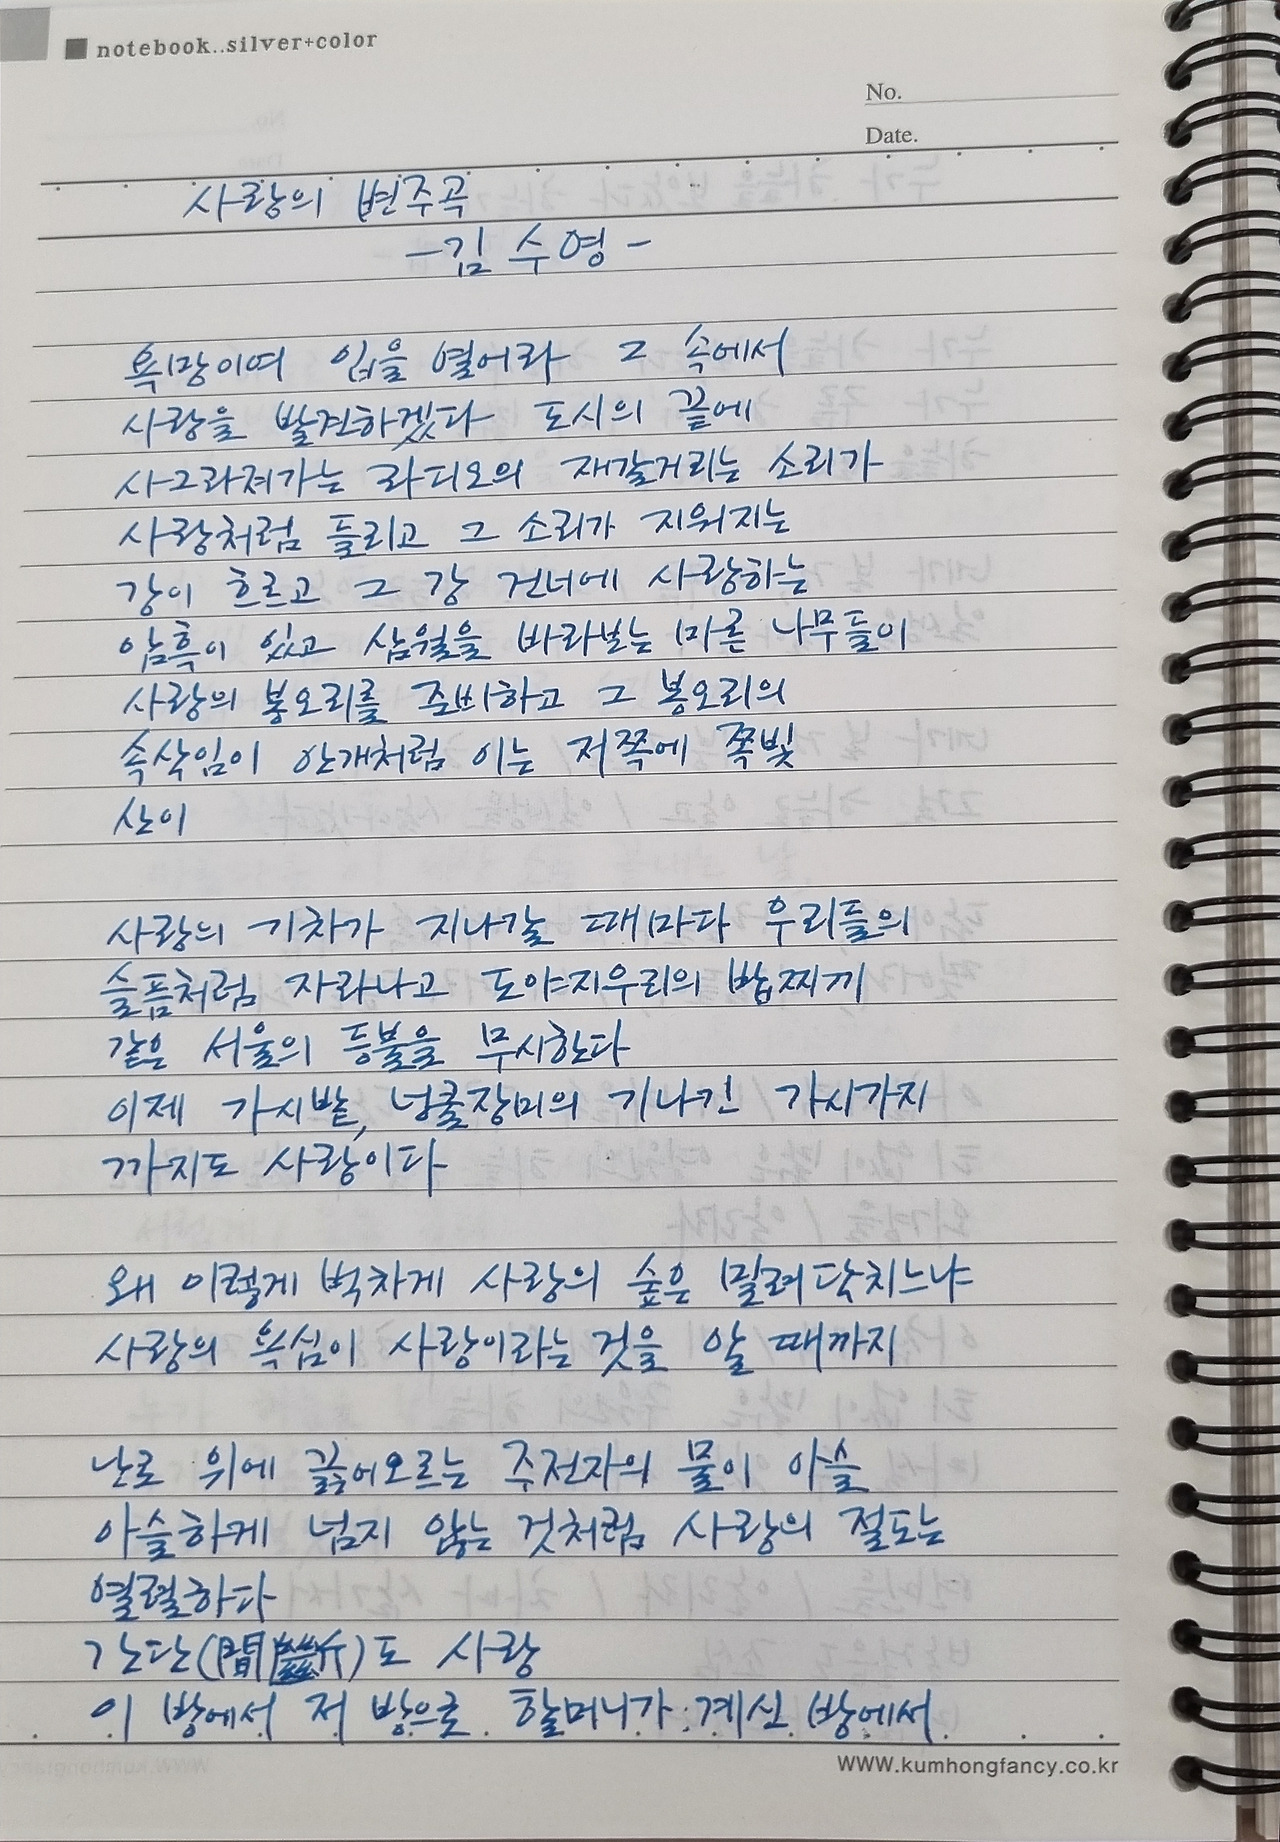 notebook..silver+color
No.
Date.
사랑의 변주곡
-김수영-
욕망이여 입을 열어라 그 속에서
사랑을 발견하겠다 도시의 끝에
사그라져가는 라디오의 재갈거리는 소리가
사랑처럼 들리고 그 소리가 지워지는
강이 흐르고 그 강 건너에 사랑하는
암흑이 있고 삼월을 바라보는 마른 나무들이
사랑의 봉오리를 준비하고 그 봉오리의
속삭임이 안개처럼 이는 저쪽에 쪽빛
산이
사랑의 기차가 지나갈 때마다 우리들의
슬픔처럼 자라나고 도야지우리의 밥찌끼
같은 서울의 등불을 무시한다
이제 가시밭, 넝쿨장미의 기나긴 가시가지
까지도 사랑이다
왜 이렇게 벅차게 사랑의 숲은 밀려닥치느냐
사랑의 욕심이 사랑이라는 것을 알 때까지
난로 위에 끓어오르는 주전자의 물이 아슬
아슬하게 넘지 않는 것처럼 사랑의 절도는
열렬하다
간단(間斷)도 사랑
이 방에서 저 방으로 할머니가 계신 방에서
WWW.kumhongfancy.co.kr